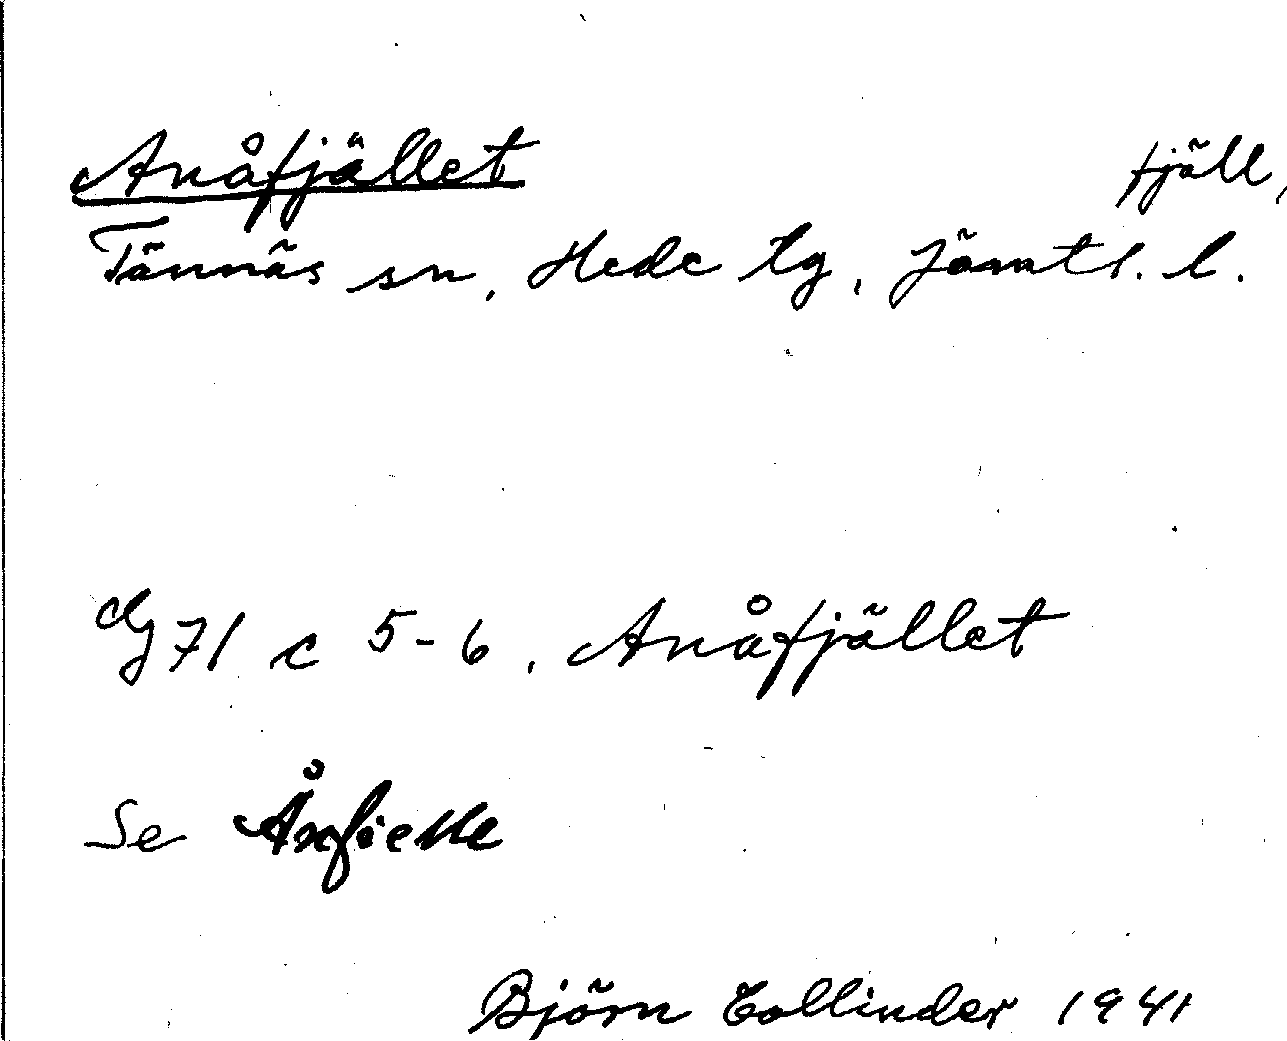 Anåfjället fjäll,
Tännäs sn, Hede tg, Jämtl. l.
Gg 71 c 5-6, Anåfjället
Se Ånfielle
Björn Collinder 1941